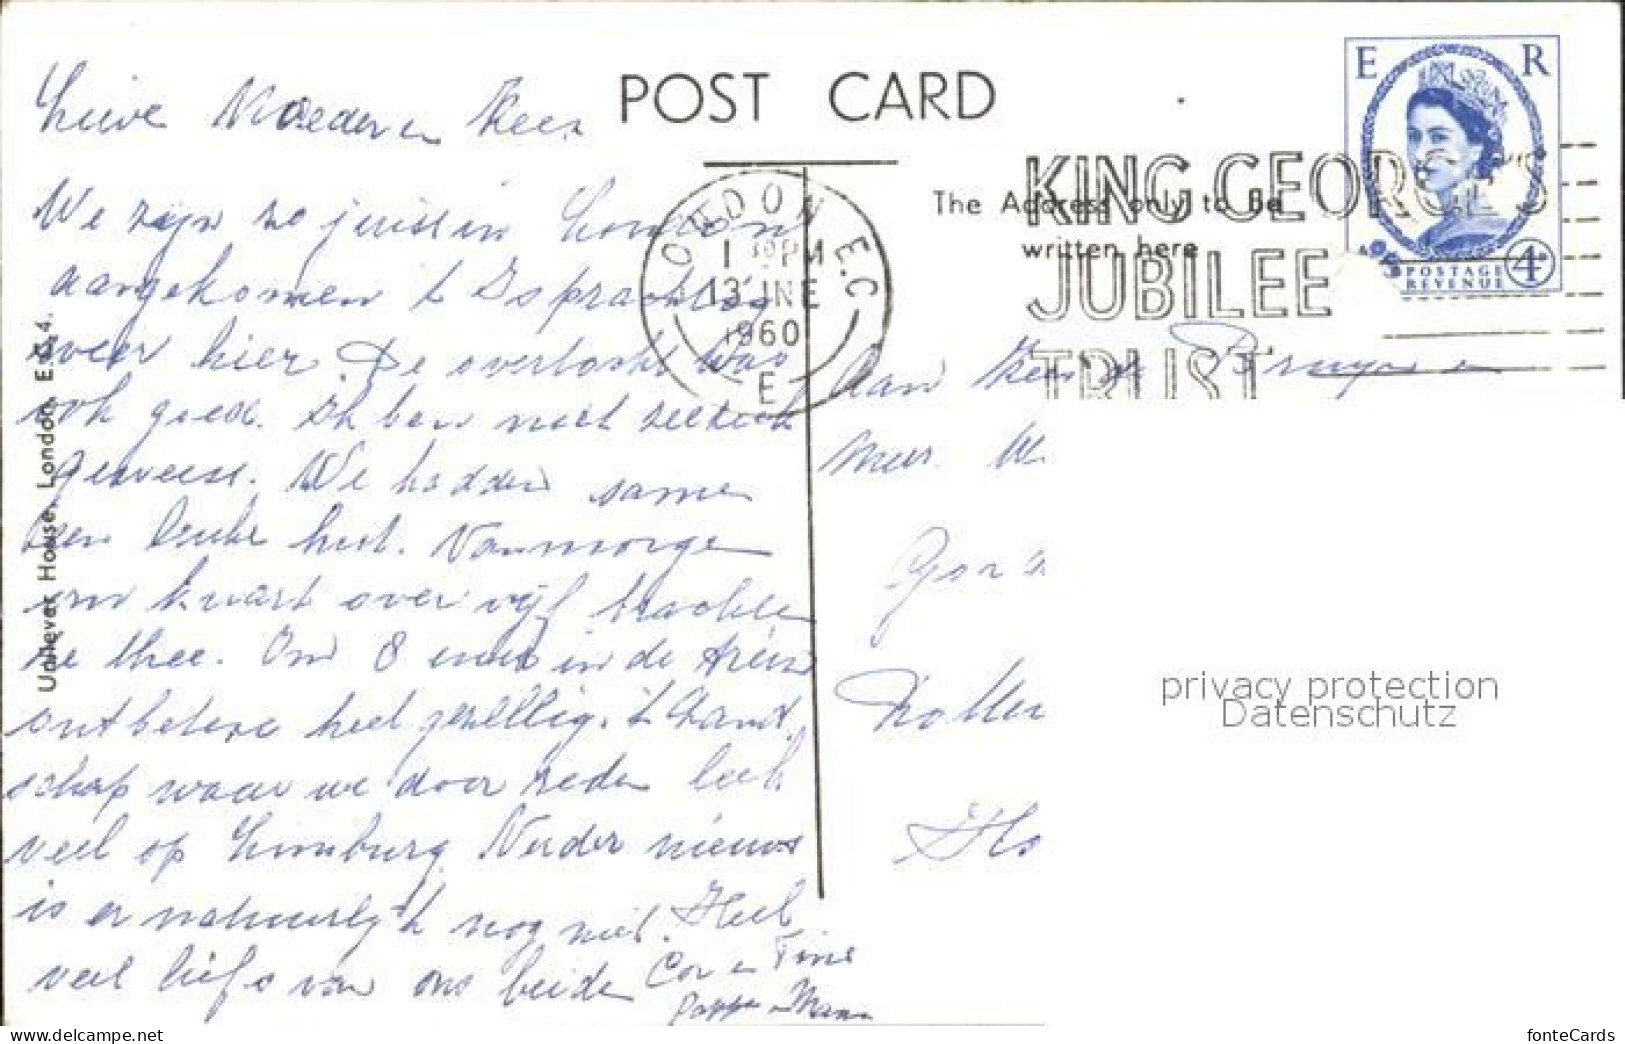 POST CARD
E R
POSTAGE
REVENUE
4D
KING GEORGE'S
JUBILEE
TRUST
The Address only to be
written here
LONDON E.C.
1 30PM
13 JNE
1960
E
Unilever House, London, E.C.4.
Lieve Moeder en Kees
We zijn zo juist in London
aangekomen t Is prachtig
weer hier. De overtocht was
ook goed. Ik ben niet zeeziek
geweest. We hadden samen
een leuke hut. Vanmorgen
om kwart over vijf brachten
ze thee. Om 8 uur in de trein
ontbeten heel gezellig. 't Land
schap waar we door reden leek
veel op Limburg. Verder nieuws
is er natuurlijk nog niet. Heel
veel liefs van ons beiden
Cor en Fine
Pappa en Mama
Aan
Mevr. W
Gor
Ho
privacy protection
Datenschutz
fonteCards
www.delcampe.net